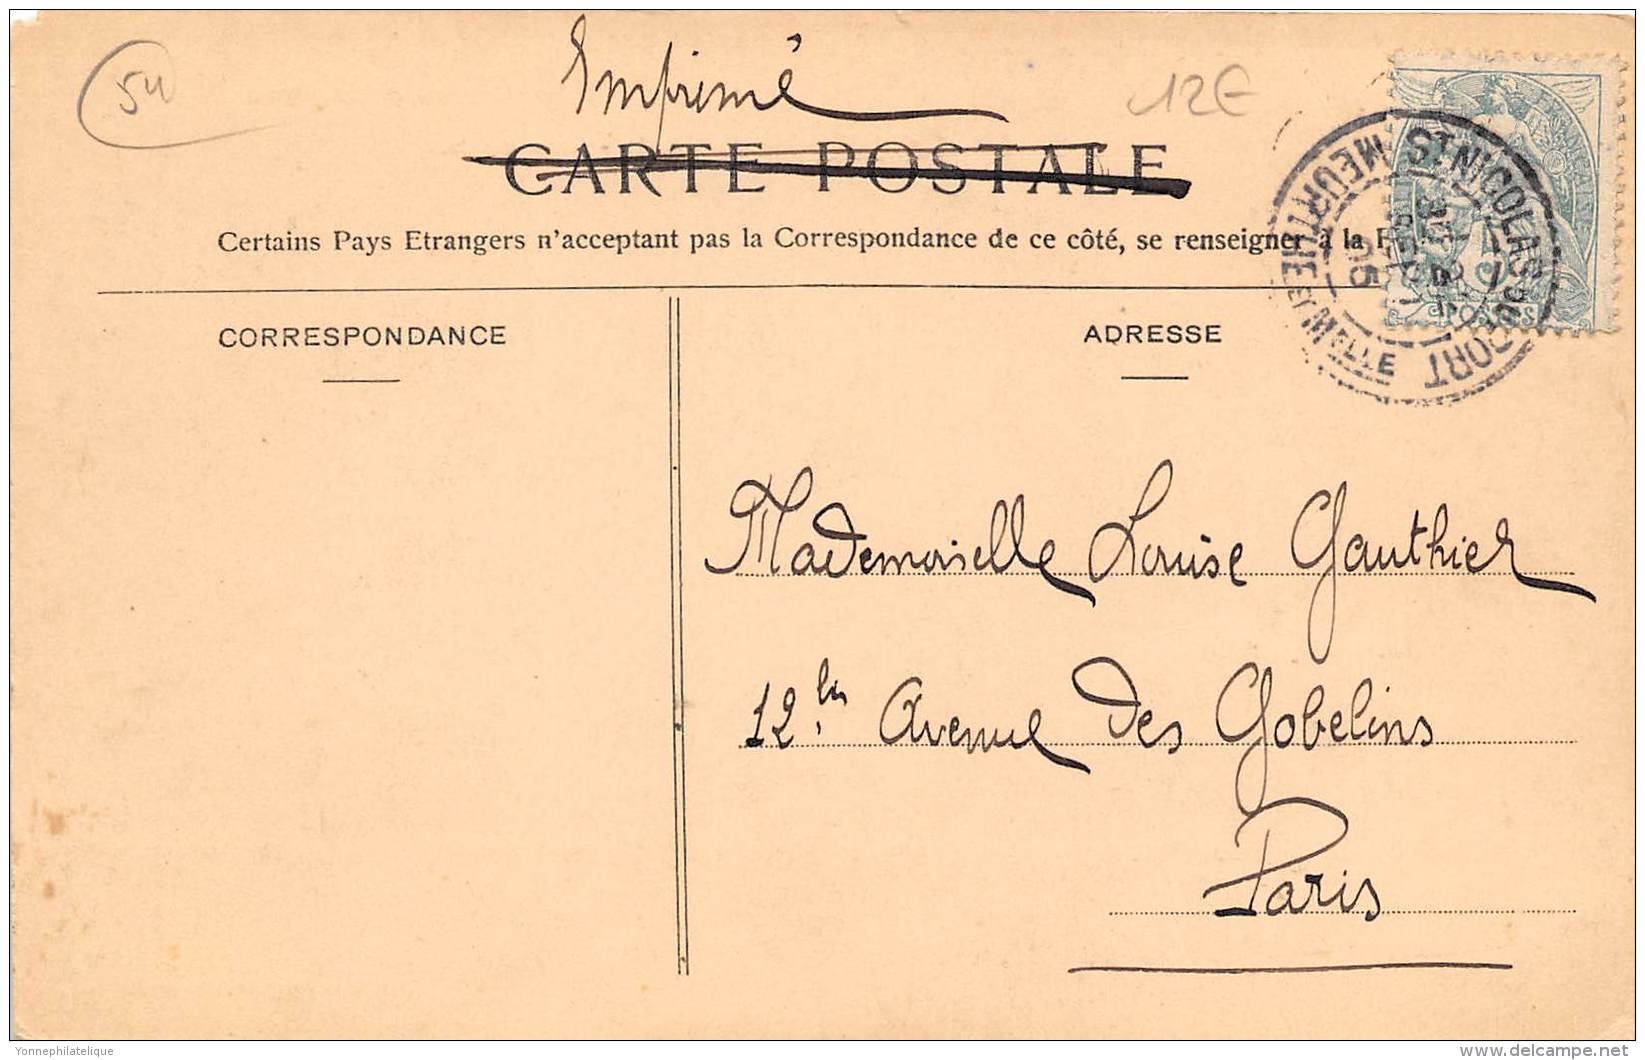 54
Imprimé
12€
CARTE POSTALE
Certains Pays Etrangers n'acceptant pas la Correspondance de ce côté, se renseigner à la
CORRESPONDANCE
ADRESSE
ST NICOLAS DU PORT
MEURTHE ET MELLE
05
POSTES
Mademoiselle Louise Gauthier
12 bis Avenue des Gobelins
Paris
Yonnephilatelique
www.delcampe.net